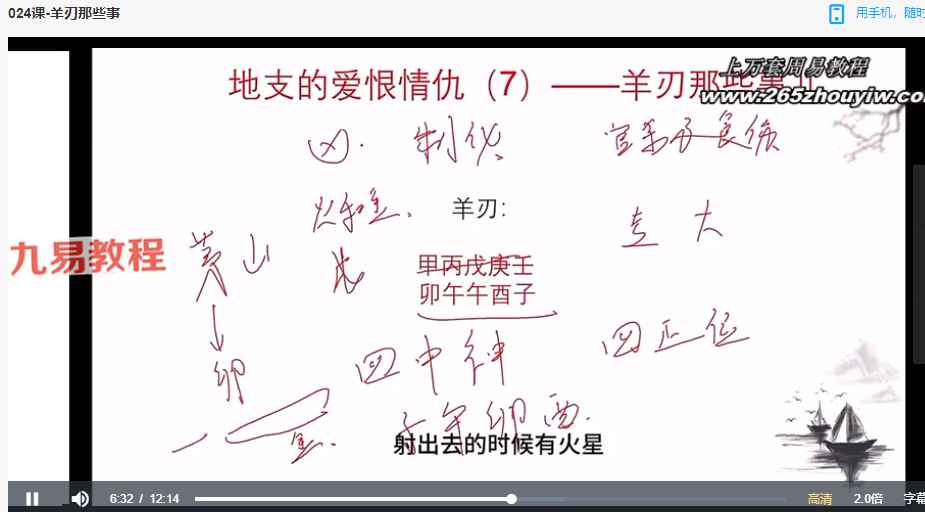 024课-羊刃那些事
用手机，随时
地支的爱恨情仇（7）——羊刃那些事
上万套周易教程
www.265zhouyiw.co
凶. 制伏
羊刃：
九易教程
甲丙戊庚壬
卯午午酉子
卯
四中神 四正位
子午卯酉.
射出去的时候有火星
6:32 / 12:14
高清 2.0倍 字幕